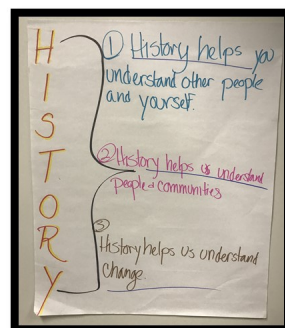 HISTORY
① History helps you
understand other people
and yourself.
② History helps us understand
people & communities
③
History helps us understand
change.